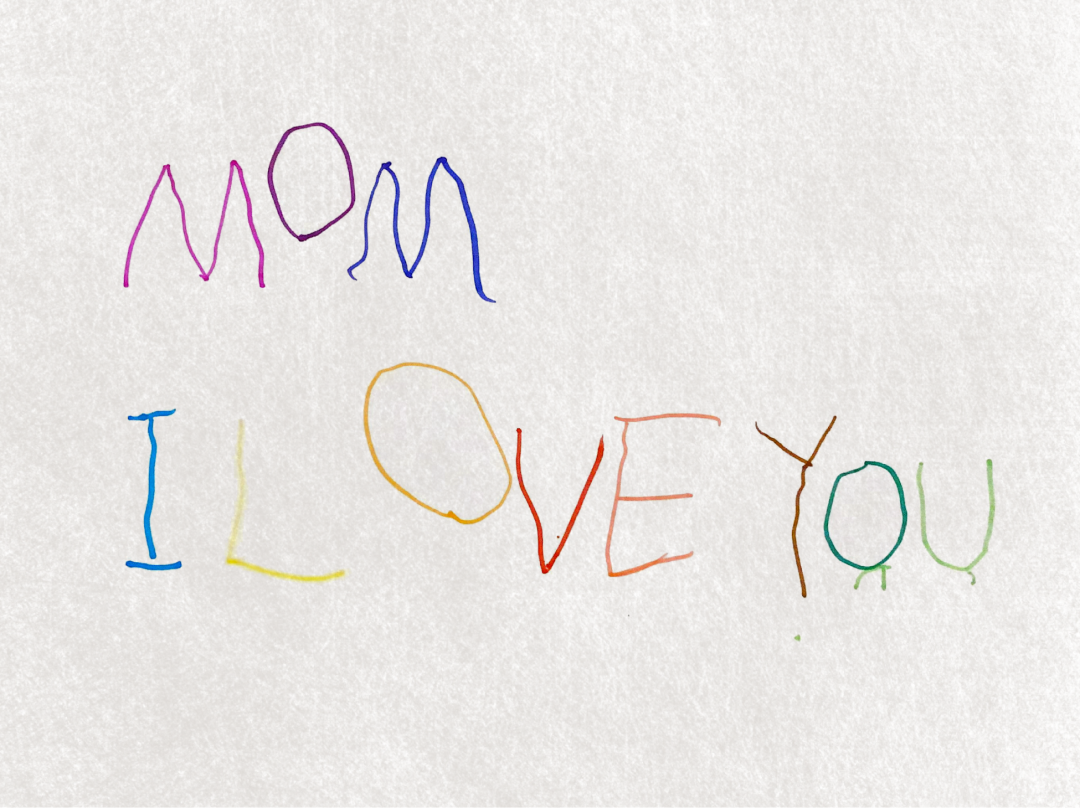 MOM
I LOVE YOU